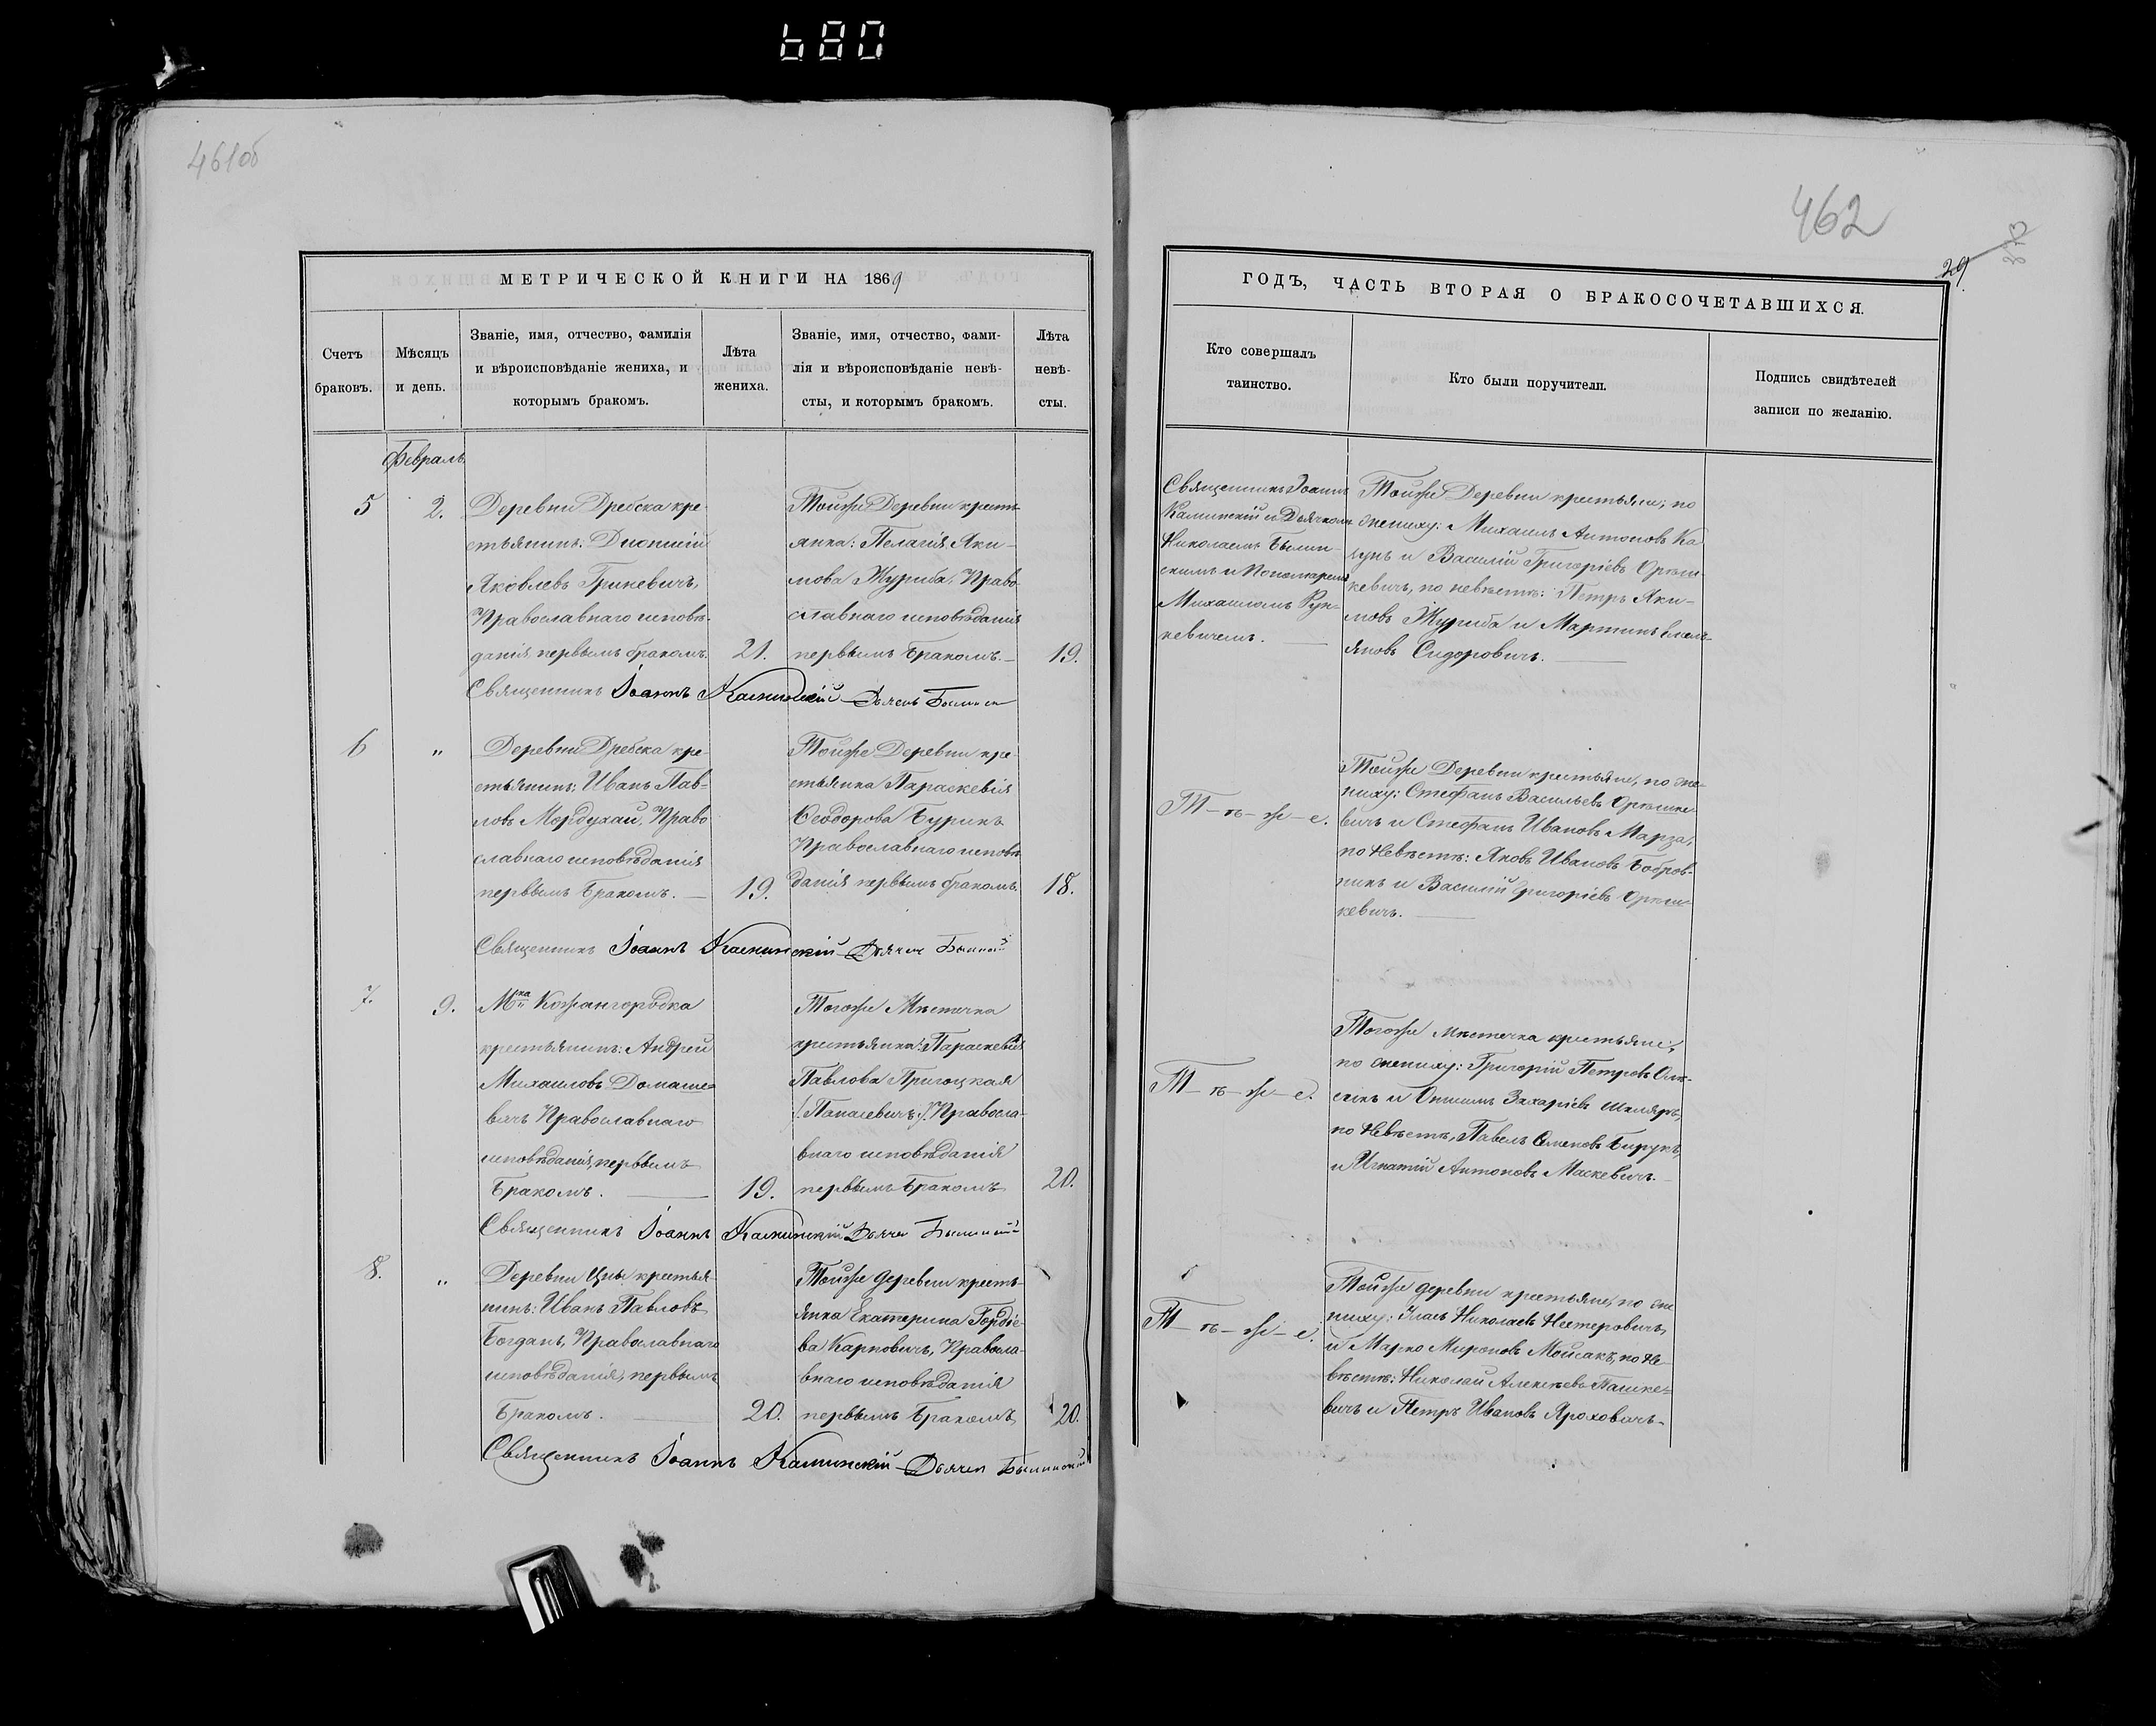 680
461об
МЕТРИЧЕСКОЙ КНИГИ НА 1869
Счетъ
браковъ.
Мѣсяцъ
и день.
Званіе, имя, отчество, фамилія
и вѣроисповѣданіе жениха, и
которымъ бракомъ.
Лѣта
жениха.
Званіе, имя, отчество, фами-
лія и вѣроисповѣданіе невѣ-
сты, и которымъ бракомъ.
Лѣта
невѣ-
сты.
Февраль
5
2.
Деревни Дребска кре-
стьянинъ: Дионисій
Яковлевъ Гриневичъ,
Православнаго исповѣ-
данія, первымъ бракомъ.
21.
Тойже Деревни кресть-
янка: Пелагія Яки-
мова Журиба, Право-
славнаго исповѣданія
первымъ бракомъ.
19.
Священникъ Іоаннъ Каминскій Дьячекъ
6
"
Деревни Дребска кре-
стьянинъ: Иванъ Пав-
ловъ Мордухай, Право
славнаго исповѣданія
первымъ бракомъ.
19.
Тойже Деревни кре-
стьянка Параскевія
Ѳеодорова Бурикъ
Православнаго исповѣ
данія первымъ бракомъ.
18.
Священникъ Іоаннъ Каминскій Дьячек
7.
9.
Мка Кожангородка
крестьянинъ: Андрей
Михаиловъ Домаше-
вичъ Православнаго
исповѣданія, первымъ
бракомъ.
19.
Тогоже Мѣстечка
крестьянка: Параскевія
Павлова Пригоцкая
Правосла-
внаго исповѣданія
первымъ бракомъ
20.
Священникъ Іоаннъ Каминскій Дьячек
8.
"
Деревни Цны крестья-
нинъ: Иванъ Павловъ
Богданъ, Православнаго
исповѣданія, первымъ
бракомъ.
20.
Тойже деревни кресть-
янка Екатерина Гордіе-
ва Карповичъ, Правосла-
внаго исповѣданія
первымъ бракомъ
20.
Священникъ Іоаннъ Каминскій Дьячек Былинскій
462
29.
ГОДЪ, ЧАСТЬ ВТОРАЯ О БРАКОСОЧЕТАВШИХСЯ.
Кто совершалъ
таинство.
Кто были поручители.
Подпись свидѣтелей
записи по желанію.
Священникъ Іоаннъ
Каминскій и Дьячкомъ
Николаемъ Былин-
скимъ и Пономаремъ
Михаиломъ Рун-
кевичемъ.
Тойже Деревни крестьяне, по
жениху: Михаилъ Антоновъ Ка
и Василій Григоріевъ Орѣш-
кевичъ, по невѣстѣ: Петръ Яки-
мовъ Журиба и Мартинъ Емель-
яновъ Сидоровичъ.
Т-ѣ-ж-е.
Тойже Деревни крестьяне, по же-
ниху: Стефанъ Васильевъ Орѣшке-
вичъ и Стефанъ Ивановъ Марза,
по Невѣстѣ: Яковъ Ивановъ Бобров-
никъ и Василій Григоріевъ Орѣш-
кевичъ.
Т-ѣ-ж-е.
Тогоже мѣстечка крестьяне,
по жениху: Григорій Петровъ
и Онисимъ Захаріевъ Шкляръ,
по Невѣстѣ, Павелъ Семеновъ Бирукъ,
и Игнатій Антоновъ Маскевичъ.
Т-ѣ-ж-е.
Тойже деревни крестьяне, по же
ниху: Николаевъ Нестеровичъ,
и Марко Мироновъ Мойсакъ, по Не-
вѣстѣ: Николай Алексѣевъ Пашке-
вичъ и Петръ Ивановъ Яроховичъ.